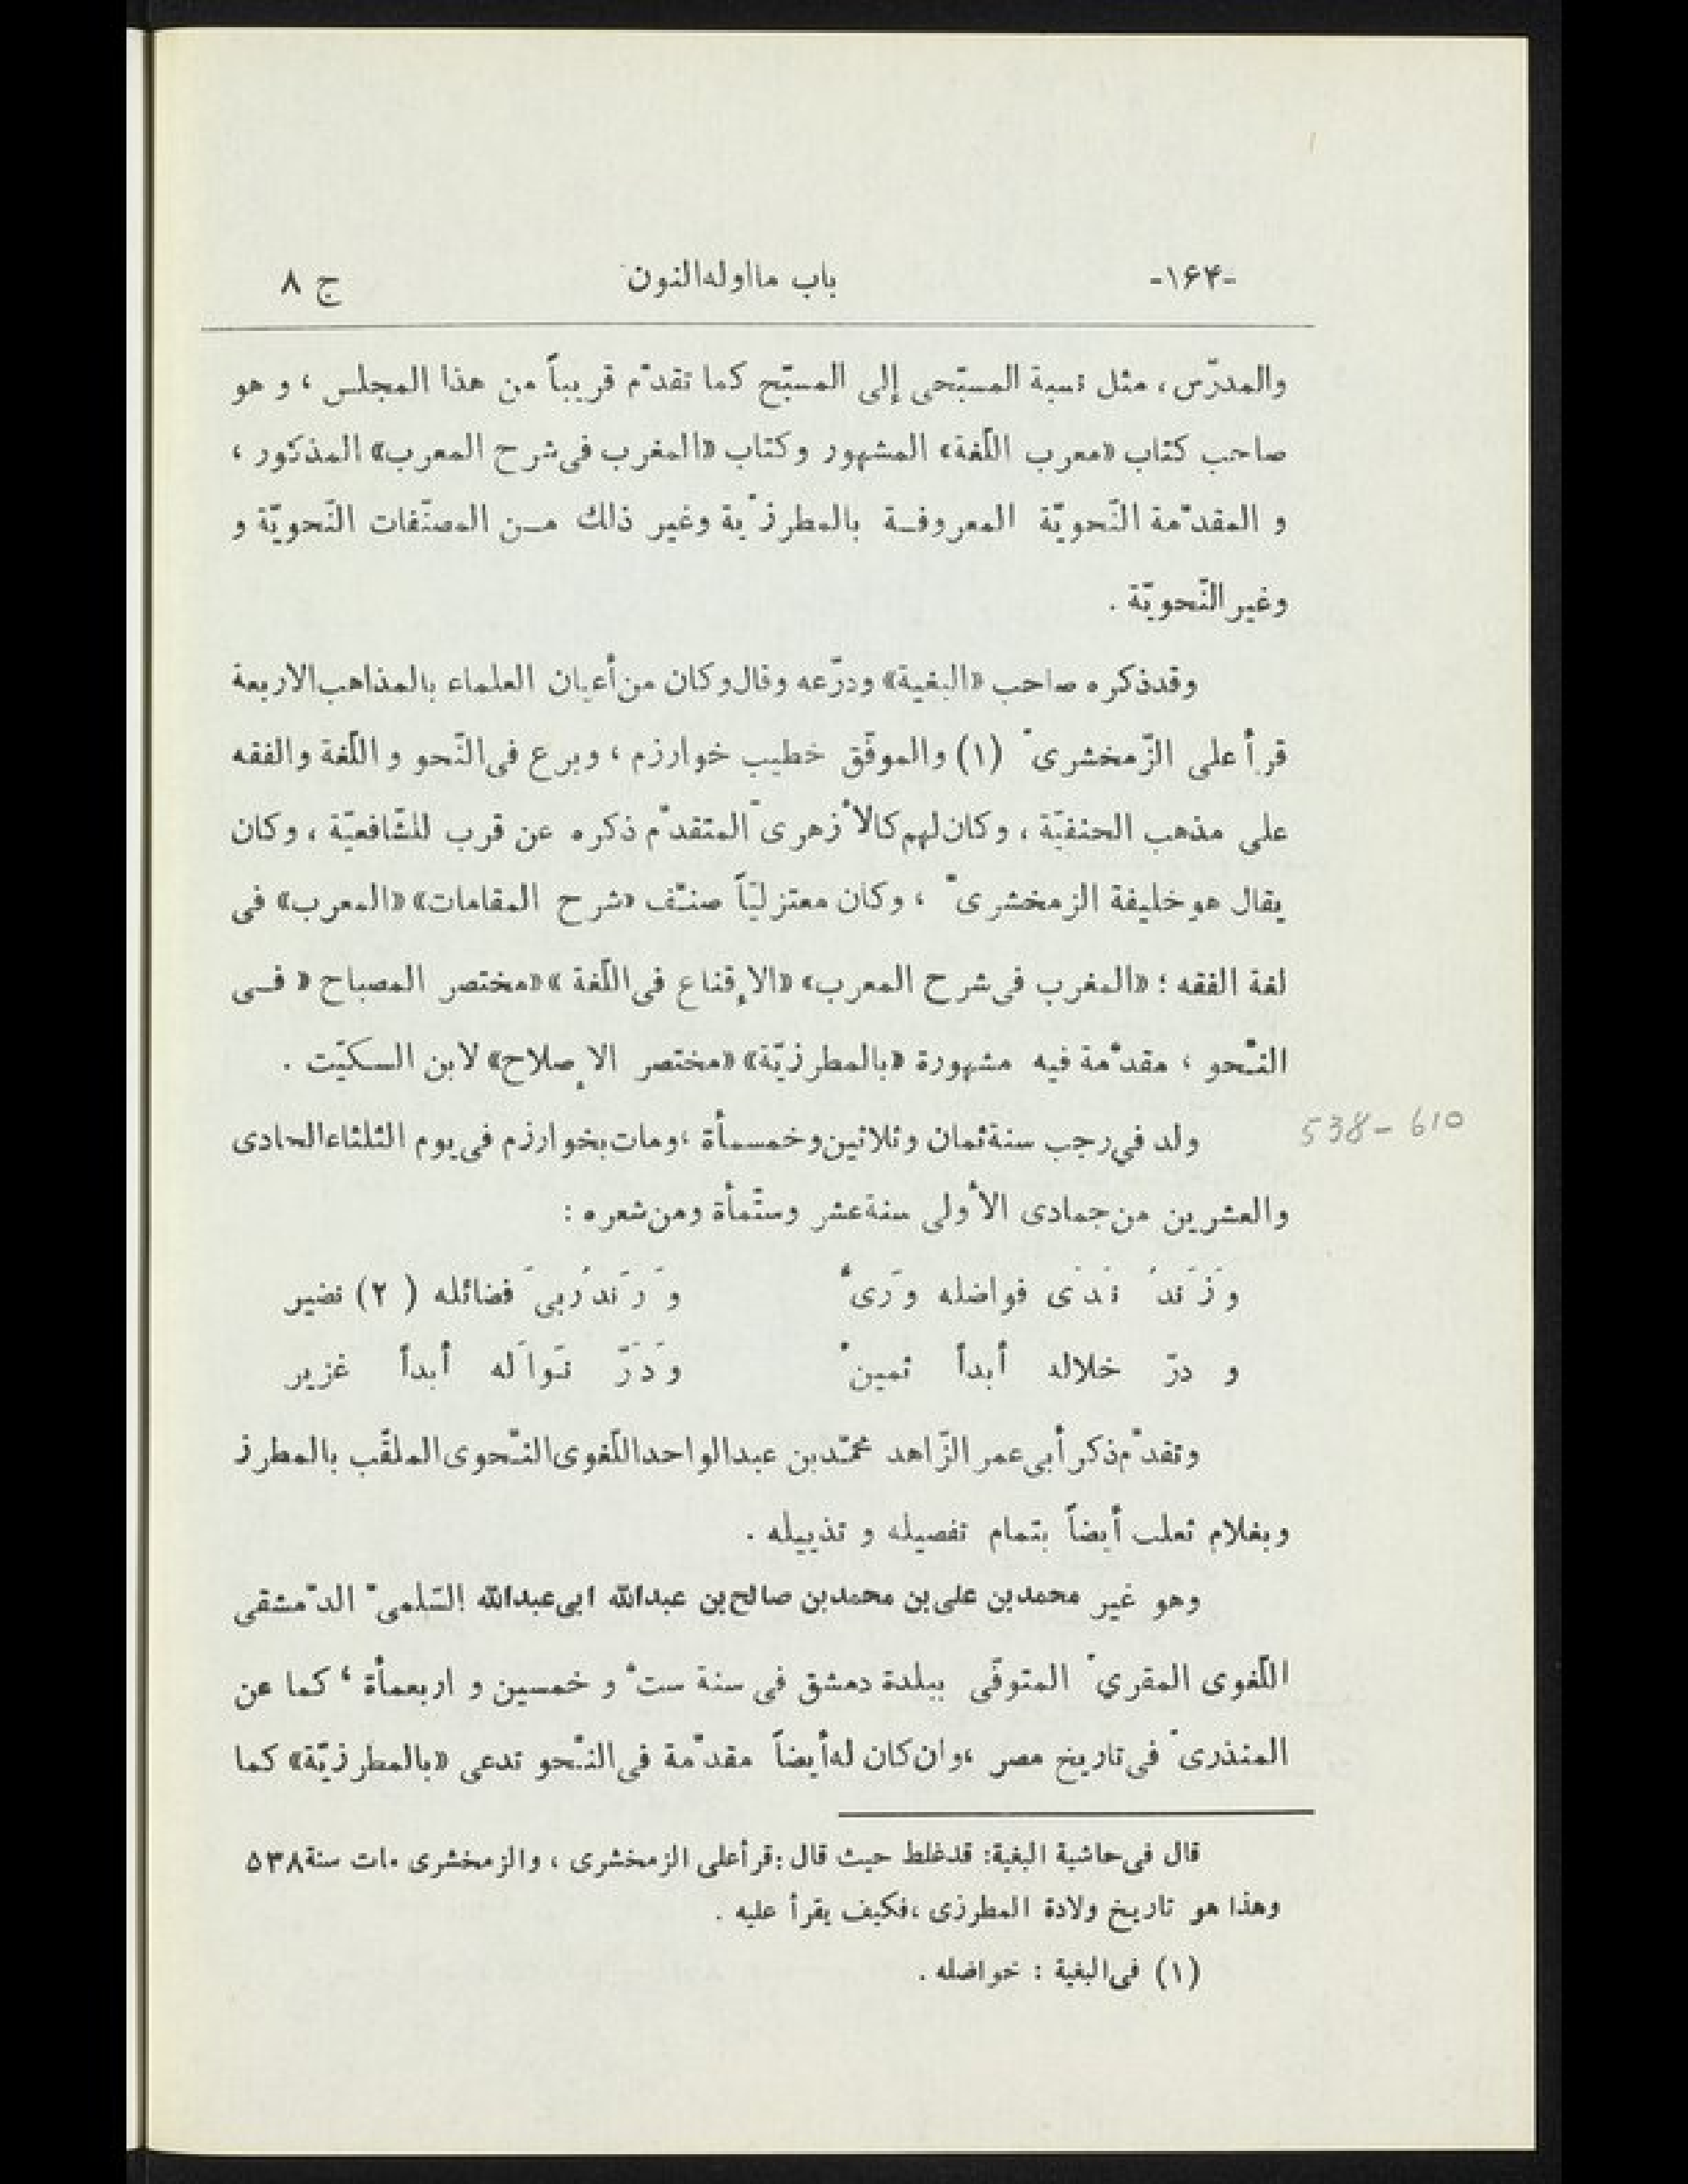 -۱۶۴- باب ما اوله النون ج ۸
والمدرّس، مثل نسبة المسبّحى إلى المسبّح كما تقدّم قريباً من هذا المجلس، و هو
صاحب كتاب «معرب اللّغة» المشهور وكتاب «المغرب فى شرح المعرب» المذكور،
و المقدّمة النّحويّة المعروفة بالمطرزّية وغير ذلك من المصنّفات النّحويّة و
وغير النّحويّة .
وقد ذكره صاحب «البغية» ودرّعه وقال وكان من أعيان العلماء بالمذاهب الاربعة
قرأ على الزّمخشرىّ (۱) والموفّق خطيب خوارزم، وبرع فى النّحو و اللّغة والفقه
على مذهب الحنفيّة، وكان لهم كالأزهرىّ المتقدّم ذكره عن قرب للشّافعيّة، وكان
يقال هو خليفة الزمخشرىّ، وكان معتزليّاً صنّف «شرح المقامات» «المعرب» فى
لغة الفقه؛ «المغرب فى شرح المعرب» «الإقناع فى اللّغة» «مختصر المصباح « فى
النّحو، مقدّمة فيه مشهورة «بالمطرزيّة» «مختصر الإصلاح» لابن السكيّت .
538-610
ولد في رجب سنة ثمان وثلاثين وخمسمأة، ومات بخوارزم فى يوم الثلثاء الحادى
والعشرين من جمادى الأولى سنة عشر وستّمأة ومن شعره :
وَزَندُ نَدَى فواضله وَرىٌّ وَرَندُ رُبىَ فضائله (۲) نضير
و درّ خلاله أبداً ثمينٌ وَدَرّ نَوَاله أبداً غزير
وتقدّم ذكر أبى عمر الزّاهد محمّد بن عبدالواحد اللّغوى النّحوى الملقّب بالمطرز
وبغلام ثعلب أيضاً بتمام تفصيله و تذييله .
وهو غير محمد بن على بن محمد بن صالح بن عبدالله ابى عبدالله السّلمىّ الدّمشقى
اللّغوى المقريّ المتوفّى ببلدة دمشق فى سنة ستّ و خمسين و اربعمأة، كما عن
المنذرىّ فى تاريخ مصر، وان كان له أيضاً مقدّمة فى النّحو تدعى «بالمطرزيّة» كما
قال فى حاشية البغية: قد غلط حيث قال: قرأ على الزمخشرى، والزمخشرى مات سنة ۵۳۸
وهذا هو تاريخ ولادة المطرزى، فكيف يقرأ عليه .
(۱) فى البغية : خواضله .